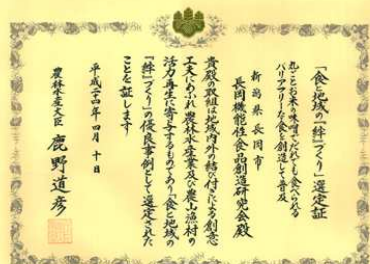 「食と地域の『絆』づくり」選定証
丸ごとお米の味噌でだれでも食べられる
バリアフリーな食を創造して普及
新潟県長岡市
長岡機能性食品創造研究会殿
貴殿の取組は地域内外の結び付きによる創意
工夫にあふれ農林水産業及び農山漁村の
活力再生に寄与するものであり「食と地域の
『絆』づくり」の優良事例として選定された
ことを証します
平成二十四年四月十日
農林水産大臣 鹿野道彦